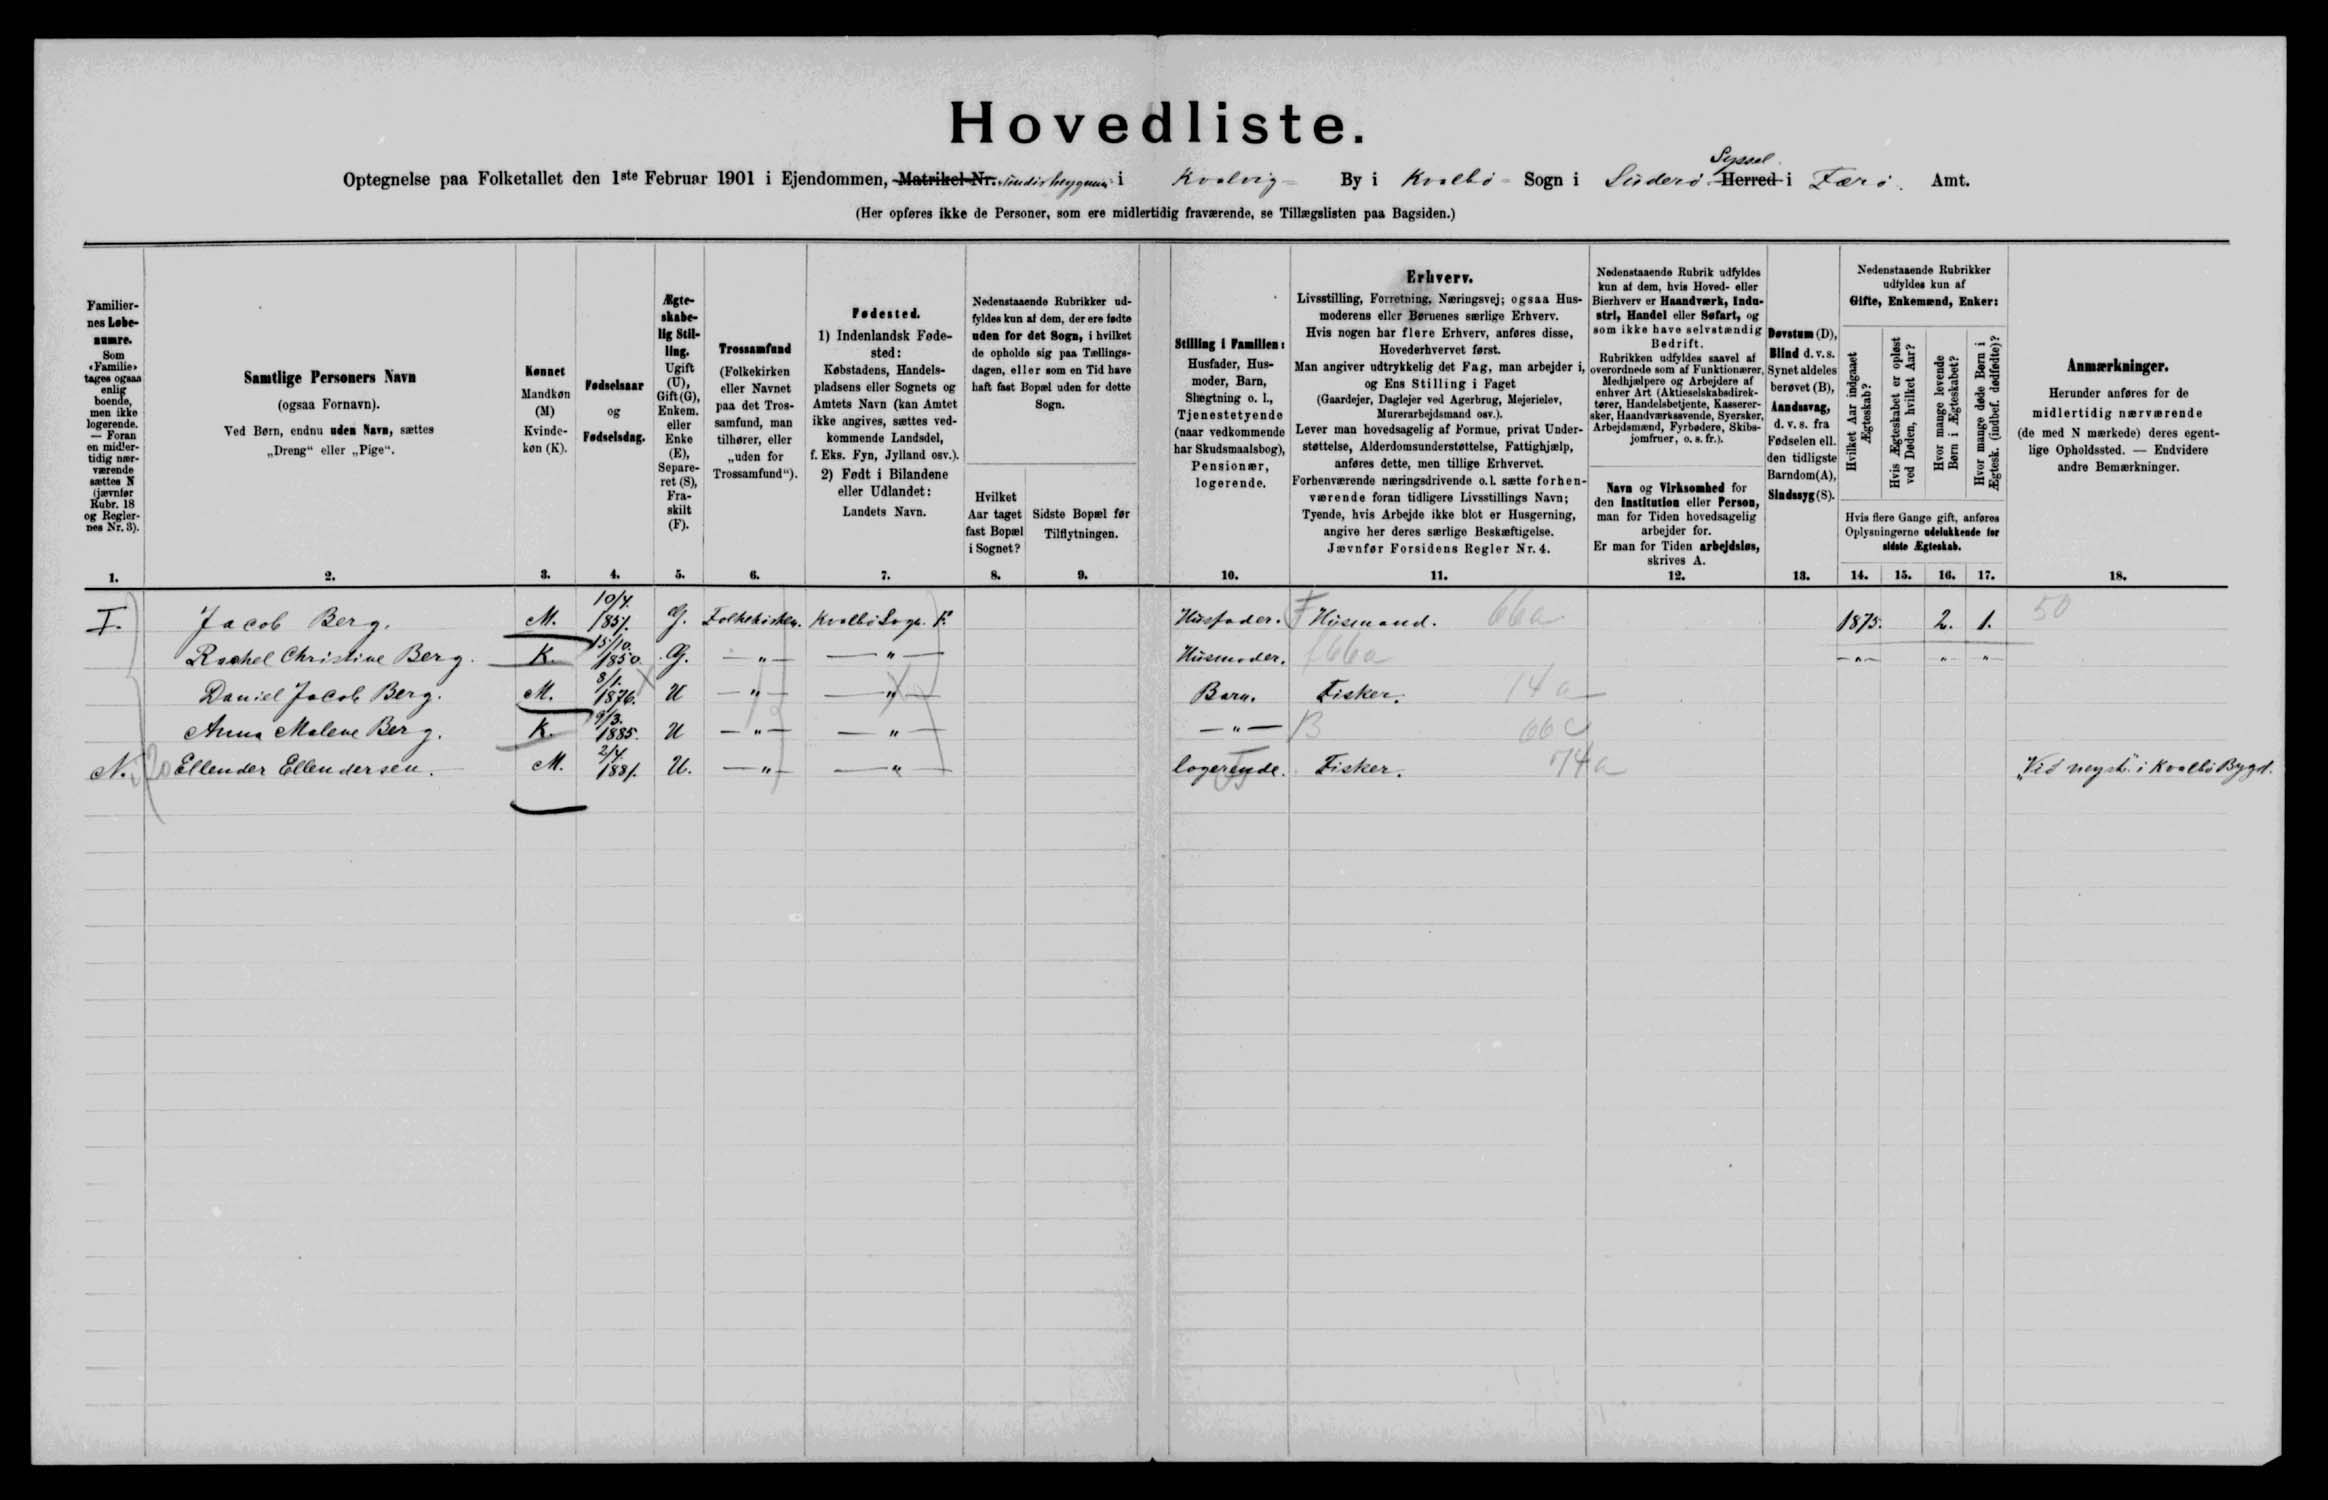 Hovedliste.
Optegnelse paa Folketallet den 1ste Februar 1901 i Ejendommen, Matrikel-Nr. i Kvalvig By i Kvalbø Sogn i Süderø Herred Syssel i Færø. Amt.
(Her opføres ikke de Personer, som ere midlertidig fraværende, se Tillægslisten paa Bagsiden.)
Familiernes Løbenumre.
Som «Familie» tages ogsaa enlig boende, men ikke logerende. — Foran en midlertidig nærværende sættes N (jævnfør Rubr. 18 og Reglernes Nr. 3).
Samtlige Personers Navn
(ogsaa Fornavn).
Ved Børn, endnu uden Navn, sættes
„Dreng“ eller „Pige“.
Kønnet
Mandkøn (M)
Kvindekøn (K).
Fødselsaar
og
Fødselsdag.
Ægteskabelig Stilling.
Ugift (U), Gift (G), Enkem. eller Enke (E), Separeret (S), Fraskilt (F).
Trossamfund
(Folkekirken eller Navnet paa det Trossamfund, man tilhører, eller „uden for Trossamfund“).
Fødested.
1) Indenlandsk Fødested:
Købstadens, Handelspladsens eller Sognets og Amtets Navn (kan Amtet ikke angives, sættes vedkommende Landsdel, f. Eks. Fyn, Jylland osv.).
2) Født i Bilandene eller Udlandet:
Landets Navn.
Nedenstaaende Rubrikker udfyldes kun af dem, der ere fødte uden for det Sogn, i hvilket de opholde sig paa Tællingsdagen, eller som en Tid have haft fast Bopæl uden for dette Sogn.
Hvilket Aar taget fast Bopæl i Sognet?
Sidste Bopæl før Tilflytningen.
Stilling i Familien:
Husfader, Husmoder, Barn, Slægtning o. l., Tjenestetyende (naar vedkommende har Skudsmaalsbog), Pensionær, logerende.
Erhverv.
Livsstilling, Forretning, Næringsvej; ogsaa Husmoderens eller Børnenes særlige Erhverv.
Hvis nogen har flere Erhverv, anføres disse, Hovederhvervet først.
Man angiver udtrykkelig det Fag, man arbejder i, og Ens Stilling i Faget
(Gaardejer, Daglejer ved Agerbrug, Mejerielev, Murerarbejdsmand osv.).
Lever man hovedsagelig af Formue, privat Understøttelse, Alderdomsunderstøttelse, Fattighjælp, anføres dette, men tillige Erhvervet.
Forhenværende næringsdrivende o. l. sætte forhenværende foran tidligere Livsstillings Navn;
Tyende, hvis Arbejde ikke blot er Husgerning, angive her deres særlige Beskæftigelse.
Jævnfør Forsidens Regler Nr. 4.
Nedenstaaende Rubrik udfyldes kun af dem, hvis Hoved- eller Bierhverv er Haandværk, Industri, Handel eller Søfart, og som ikke have selvstændig Bedrift.
Rubrikken udfyldes saavel af overordnede som af Funktionærer, Medhjælpere og Arbejdere af enhver Art (Aktieselskabsdirektører, Handelsbetjente, Kasserersker, Haandværkssvende, Syersker, Arbejdsmænd, Fyrbødere, Skibsjomfruer, o. s. fr.).
Navn og Virksomhed for den Institution eller Person, man for Tiden hovedsagelig arbejder for.
Er man for Tiden arbejdsløs, skrives A.
Døvstum (D), Blind d. v. s. Synet aldeles berøvet (B), Aandssvag, d. v. s. fra Fødselen ell. den tidligste Barndom (A), Sindssyg (S).
Nedenstaaende Rubrikker udfyldes kun af
Gifte, Enkemænd, Enker:
Hvilket Aar indgaaet Ægteskab?
Hvis Ægteskabet er opløst ved Døden, hvilket Aar?
Hvor mange levende Børn i Ægteskabet?
Hvor mange døde Børn i Ægtesk. (indbef. dødfødte)?
Hvis flere Gange gift, anføres Oplysningerne udelukkende for sidste Ægteskab.
Anmærkninger.
Herunder anføres for de midlertidig nærværende (de med N mærkede) deres egentlige Opholdssted. — Endvidere andre Bemærkninger.
1. 2. 3. 4. 5. 6. 7. 8. 9. 10. 11. 12. 13. 14. 15. 16. 17. 18.
I. Jacob Berg. M. 10/4. 1851. G. Folkekirken. Kvalbø Sogn. F. Husfader. F Husmand. 66a 1875. 2. 1. 50
Rachel Christine Berg. K. 15/10. 1850. G. — " — — " — Husmoder. f 66a — " — " "
Daniel Jacob Berg. M. 8/1. 1876. U — " — — " — Barn. Fisker. 14 a
Anna Malene Berg. K. 9/3. 1885. U — " — — " — — " — B 66 c
N. Ellender Ellendersen. M. 2/4. 1881. U. — " — — " — logerende. Fisker. 74 a i Kvalbø Bygd.